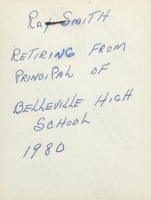 Ray Smith
Retiring from
Principal of
Belleville High
School
1980